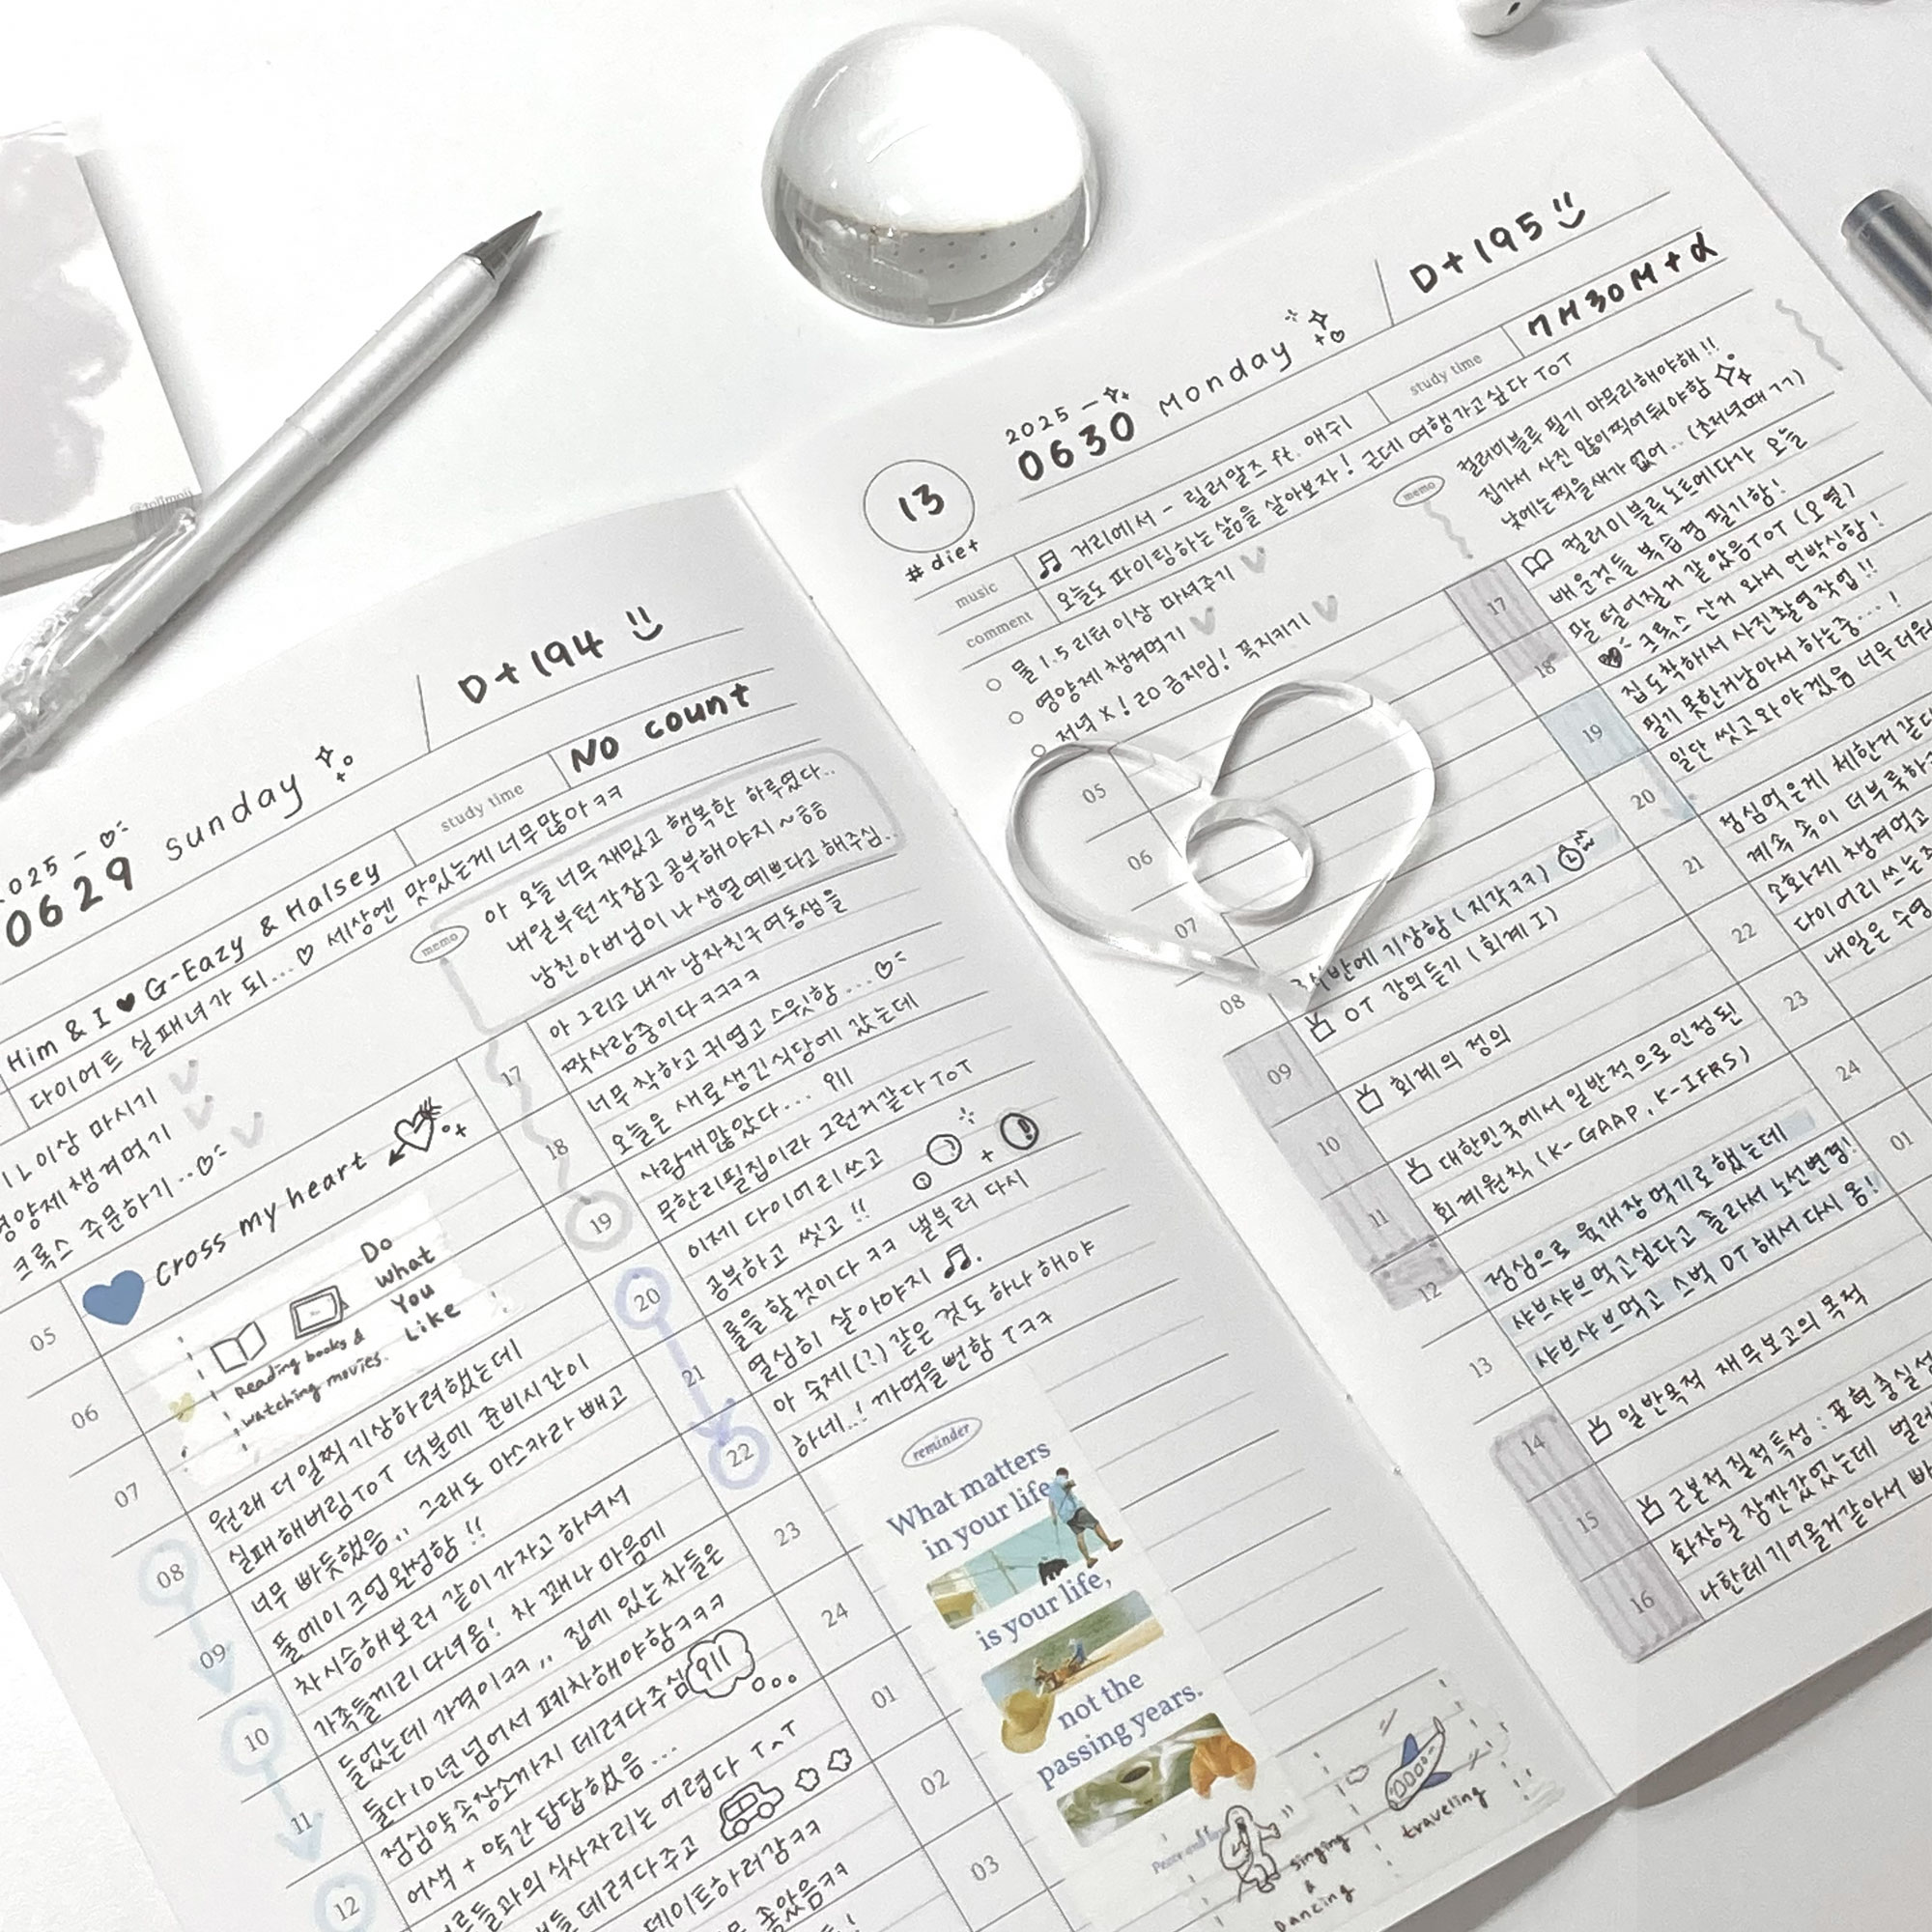 2025 -
0629 sunday
D+194
study time
No count
Him & I ♥ G-Eazy & Halsey
다이어트 실패녀가 되...♡ 세상엔 맛있는게 너무많아ㅋㅋ
1L이상 마시기
영양제 챙겨먹기
크록스 주문하기..♡
memo
아 오늘 너무 재밌고 행복한 하루였다..
내일부턴 각잡고 공부해야지~ㅎㅎ
남친아버님이 나 생얼예쁘다고 해주심..
Cross my heart
Do
What
You
Like
Reading books &
watching movies.
05
06
07
08
09
10
11
12
원래 더 일찍 기상하려했는데
실패해버림ToT 덕분에 준비시간이
너무 빠듯했음,, 그래도 마스카라 빼고
풀메이크업 완성함!!
차 시승해보러 같이 가자고 하셔서
가족들끼리 다녀옴! 차 꽤나 마음에
들었는데 가격이ㅋㅋ,, 집에 있는 차들은
둘다 10년 넘어서 폐차해야함ㅋㅋㅋ
점심약속장소까지 데려다주심
어색 + 약간 답답했음...
른들과의 식사자리는 어렵다 T^T
들 데려다주고
데이트하러감ㅋㅋ
좋았음ㅋㅋ
17
18
19
20
21
22
23
24
01
02
03
아 그리고 내가 남자친구여동생을
짝사랑중이다ㅋㅋㅋㅋ
너무 착하고 귀엽고 스윗함...♡
오늘은 새로생긴식당에 갔는데
사람개많았다...
무한리필집이라 그런거같다ToT
이제 다이어리쓰고
공부하고 씻고!!
룰을 할것이다ㅋㅋ 낼부터 다시
열심히 살아야지 ♫.
아 숙제(?)같은 것도 하나 해야
하네..! 까먹을뻔함 ㅋㅋ
reminder
What matters
in your life
is your life,
not the
passing years.
singing
&
Dancing
traveling
13
#diet
2025 -
0630 Monday
D+195
study time
7H30M+α
music
♫ 거리에서 - 릴러말즈 ft. 애쉬
comment
오늘도 파이팅하는 삶을 살아보자! 근데 여행가고싶다 ToT
물 1.5리터 이상 마셔주기
영양제챙겨먹기
저녁 X! 20 금지임! 꼭지키기
memo
컬러미블루 필기 마무리해야해!!
집가서 사진 많이찍어둬야함
낮에는찍을새가 없어.. (초저녁때ㄱㄱ)
05
06
07
08
09
10
11
12
13
14
15
16
반에 기상함 (지각ㅋㅋ)
OT 강의듣기 (회계 I)
회계의 정의
대한민국에서 일반적으로인정된
회계원칙 (K-GAAP, K-IFRS)
점심으로 육개장 먹기로했는데
샤브샤브먹고싶다고 졸라서 노선변경!
샤브샤브먹고 스벅 DT 해서 다시 옴!
일반목적 재무보고의 목적
근본적 질적특성 : 표현충실성
화장실 잠깐갔었는데 벌레
나한테 기어올거같아서
17
18
19
20
21
22
23
24
01
컬러미블루노트에다가 오늘
배운것들 복습겸 필기함!
팔 떨어질거 같았음ToT (오열)
크록스 산거 와서 언박싱함!
집도착해서 사진촬영작업!!
필기 못한거남아서 하는중...!
일단 씻고와야겠음 너무더워
점심먹은게 체한거 같
계속 속이 더부룩하
소화제 챙겨먹고
다이어리 쓰는
내일은 수영